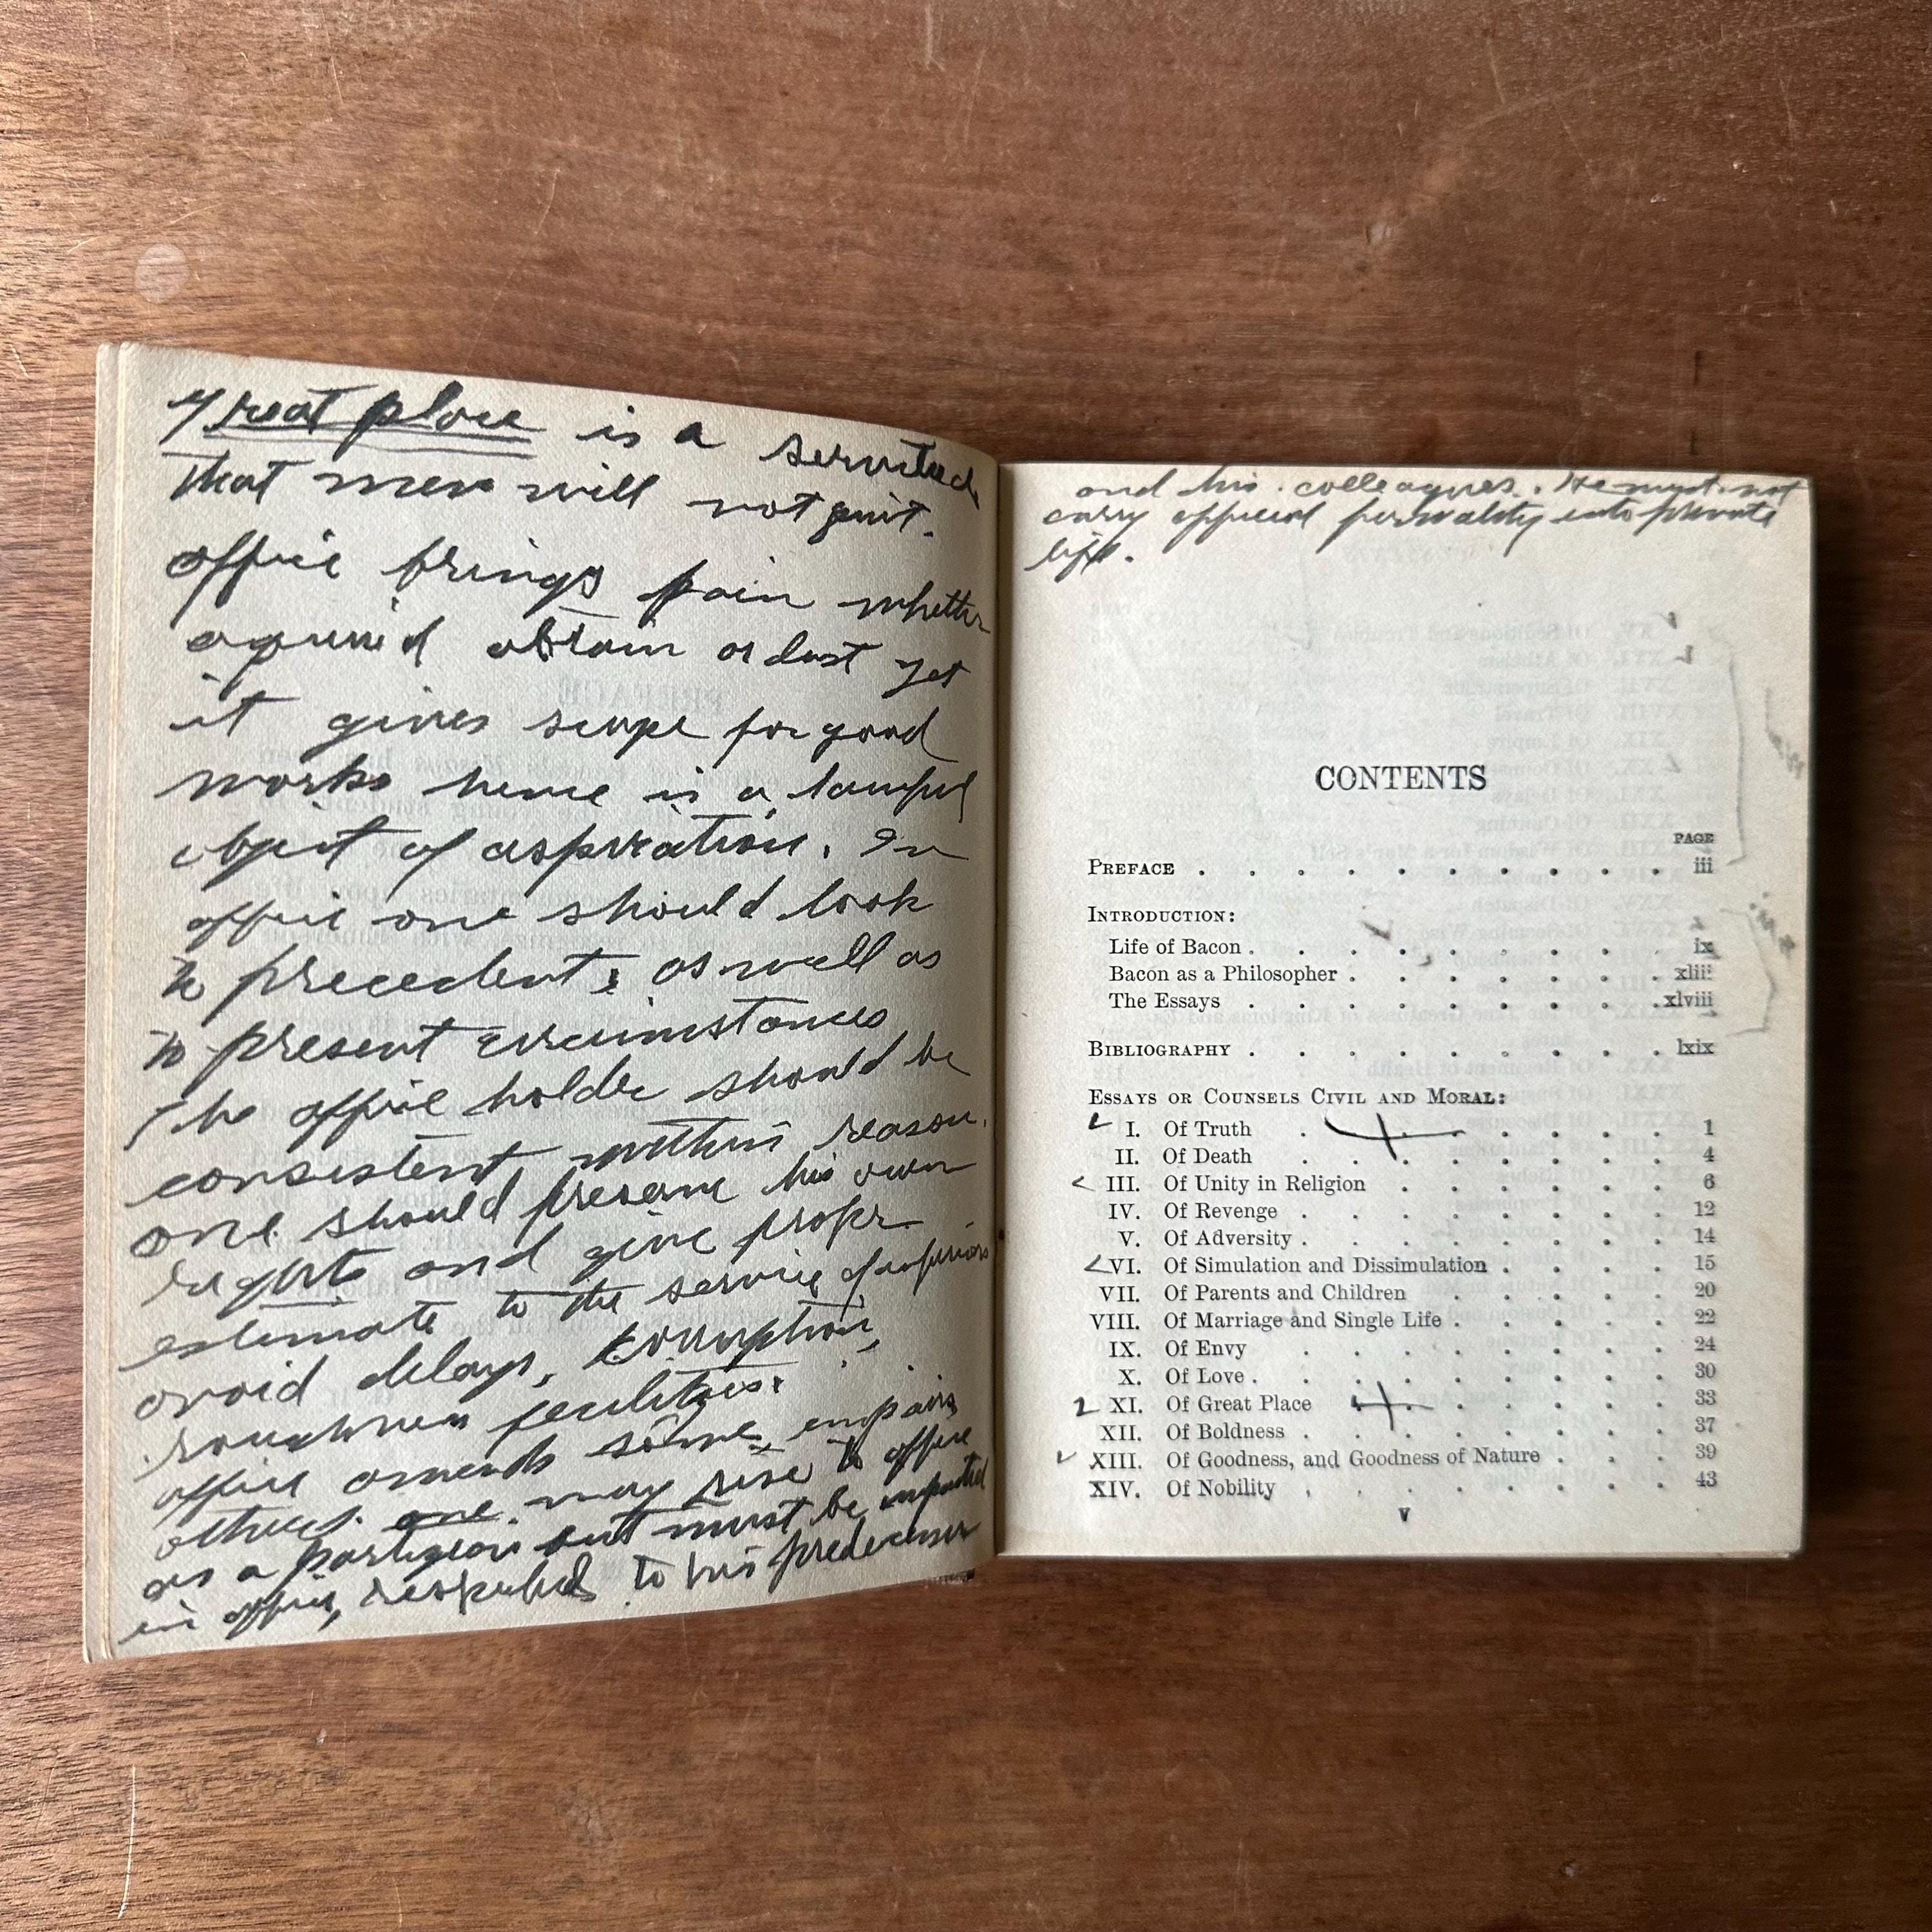 Great place is a servitude
that men will not quit.
office brings pain whether
aquired obtain or lost yet
it gives scope for good
works hence is a lawful
object of aspiration. In
office one should look
to precedents as well as
to present circumstances
The office holder should be
consistent within reason.
one should preserve his own
rights and give proper
estimate to the service of inferiors
avoid delays, corruption,
roughness facilities.
office amends some, impairs
others. one may rise to office
as a partizan but must be impartial
in office, respectful to his predecessor
and his colleagues. He must not
carry official formality into private
life.
CONTENTS
PAGE
PREFACE . . . . . . . . . . iii
INTRODUCTION:
Life of Bacon . . . . . . . . ix
Bacon as a Philosopher . . . . . . . xliii
The Essays . . . . . . . . xlviii
BIBLIOGRAPHY . . . . . . . . . lxix
ESSAYS OR COUNSELS CIVIL AND MORAL:
I. Of Truth . . . . . . . 1
II. Of Death . . . . . . . 4
III. Of Unity in Religion . . . . . . 6
IV. Of Revenge . . . . . . . 12
V. Of Adversity . . . . . . . 14
VI. Of Simulation and Dissimulation . . . . 15
VII. Of Parents and Children . . . . . 20
VIII. Of Marriage and Single Life . . . . . 22
IX. Of Envy . . . . . . . 24
X. Of Love . . . . . . . . 30
XI. Of Great Place . . . . . . 33
XII. Of Boldness . . . . . . . 37
XIII. Of Goodness, and Goodness of Nature . . . 39
XIV. Of Nobility . . . . . . . 43
v